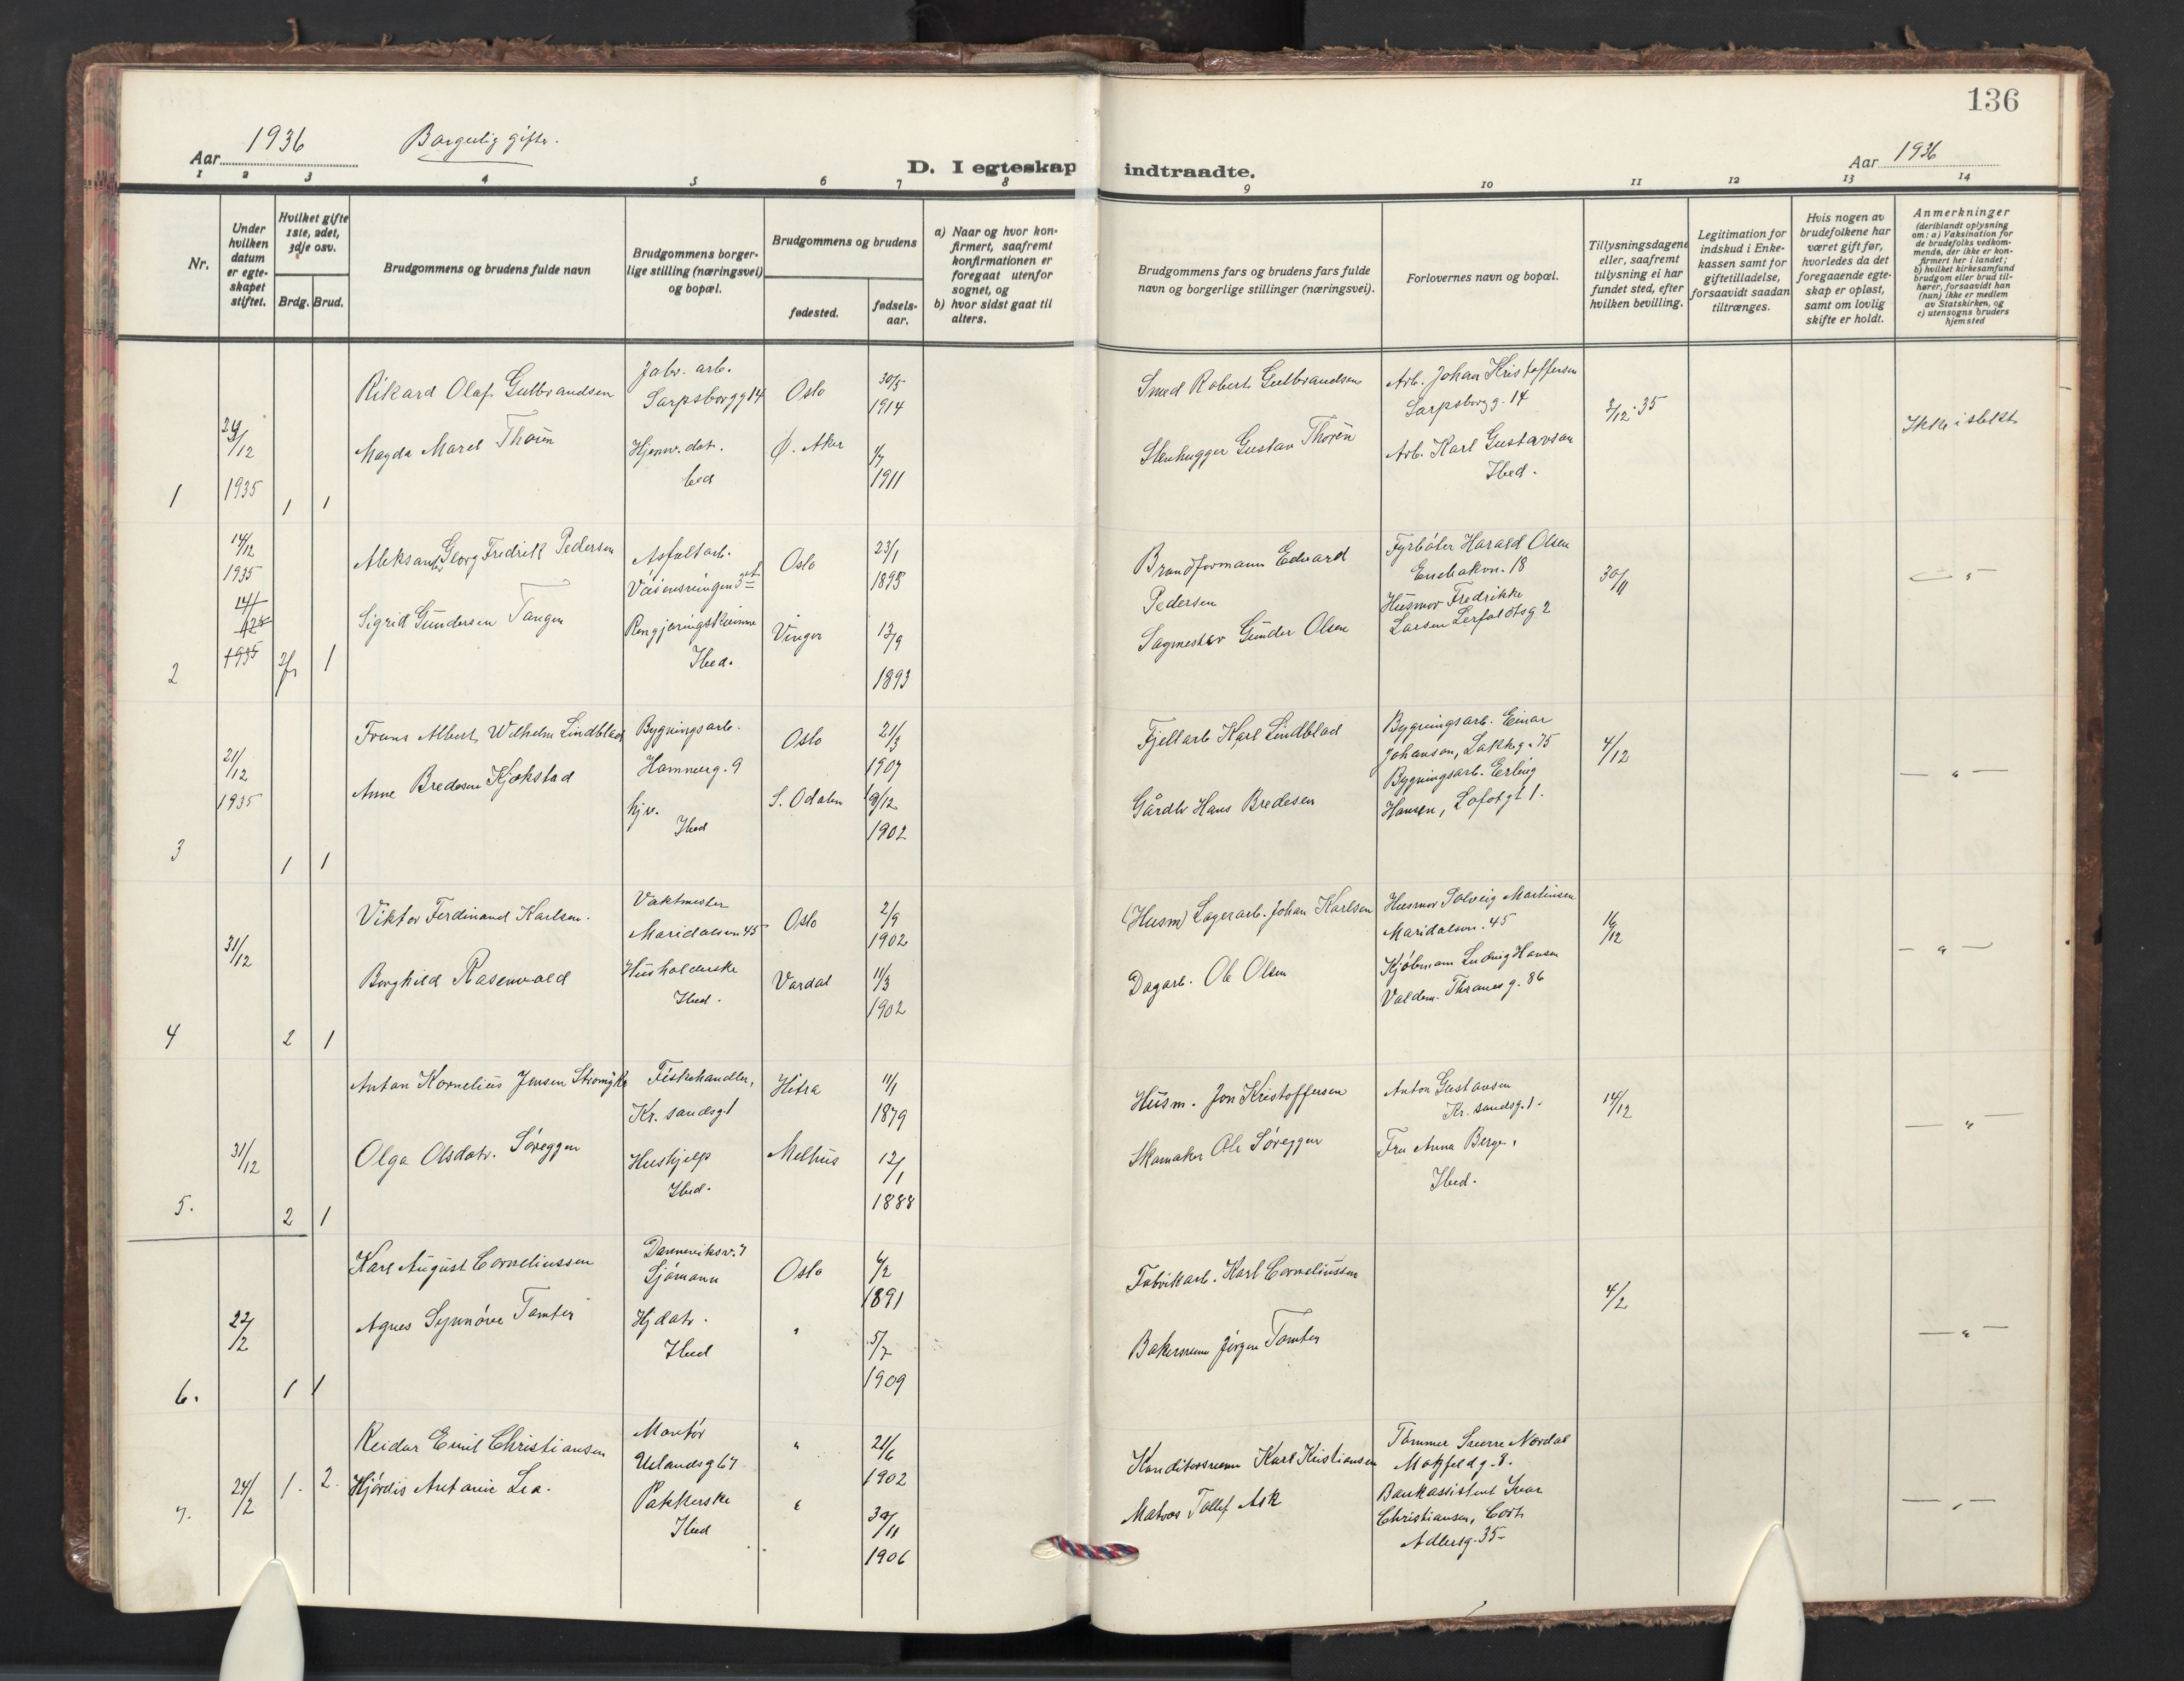 136
Aar 1936 Borgerlig gifte.
D. I egteskap indtraadte.
Aar 1936
1 2 3 4 5 6 7 8 9 10 11 12 13 14
Nr.
Under hvilken datum er egte-skapet stiftet.
Hvilket gifte 1ste, 2det, 3dje osv.
Brdg. Brud.
Brudgommens og brudens fulde navn
Brudgommens borger-lige stilling (næringsvei) og bopæl.
Brudgommens og brudens
fødested.
fødsels-aar.
a) Naar og hvor kon-firmert, saafremt konfirmationen er foregaat utenfor sognet, og
b) hvor sidst gaat til alters.
Brudgommens fars og brudens fars fulde navn og borgerlige stillinger (næringsvei).
Forlovernes navn og bopæl.
Tillysningsdagene eller, saafremt tillysning ei har fundet sted, efter hvilken bevilling.
Legitimation for indskud i Enke-kassen samt for giftetilladelse, forsaavidt saadan tiltrænges.
Hvis nogen av brudefolkene har været gift før, hvorledes da det foregaaende egte-skap er opløst, samt om lovlig skifte er holdt.
Anmerkninger
(deriblandt oplysning om: a) Vaksination for de brudefolks vedkom-mende, der ikke er kon-firmert her i landet;
b) hvilket kirkesamfund brudgom eller brud til-hører, forsaavidt han (hun) ikke er medlem av Statskirken, og
c) utensogns bruders hjemsted
Rikard Olaf Gulbrandsen
Fabr. arb.
Sarpsborgg 14
Oslo
30/5
1914
Smed Robert Gulbrandsen
Arb. Johan Kristoffersen
Sarpsborgg. 14
3/12-35
Ikke i slekt
/12
1935
Magda Marel Thorén
Hjemv. dat.
Ibed
Ø. Aker
1/7
1911
Stenhugger Gustav Thorén
Arb. Karl Gustavson
Ibed.
1 1 1
14/12
1935
Aleksander Georg Fredrik Pedersen
Asfaltarb.
Oslo
23/1
1895
Brandformann Edvard
Pedersen
Fyrbøter Harald Olsen
Enebakvn. 18
30/11
— " —
1935
Sigrid Gundersen Tangen
Rengjøringskvinne
Ibed.
Vinger
13/9
1893
Sagmester Gunder Olsen
Husmor Fredrikke
Larsen Lerfaldtsg 2
2 1
Frans Albert Wilhelm Lindblad
Bygningsarb.
Hammerg. 9
Oslo
21/3
1907
Fjellarb Karl Lindblad
Bygningsarb. Einar
Johanson, Lakkeg. 75
4/12
— " —
21/12
1935
Anne Bredesen Kjøkstad
hjv.
Ibed
S. Odalen
9/12
1902
Gårdbr Hans Bredesen
Bygningsarb. Erling
Hansen, Lofotgt 1.
3 1 1
Viktor Ferdinand Karlsen.
Vaktmester
Maridalsvn 45
Oslo
2/9
1902
(Husm) Lagerarb. Johan Karlsen
Husmor Solveig Martinsen
Maridalsvn. 45
16/12
— " —
31/12
Borghild Rasenvald
Husholderske
Ibed.
Vardal
11/3
1902
Dagarb. Ole Olsen
Kjøbmann Ludvig Hansen
Valdem. Thranes g. 86
4 2 1
Anton Kornelius Jensen
Fiskehandler,
Kr. sandsg. 1
Hitra
11/1
1879
Husm. Jon Kristoffersen
Anton Gustavsen
Kr. sandsg. 1.
14/12
— " —
31/12
Olga Olsdatr. Søreggen
Hushjelp
Ibed.
Melhus
12/1
1888
Skomaker Ole Søreggen
Fru Anna Berge,
Ibed.
5. 2 1
Karl August Corneliussen
Danneviksv. 7
Sjømann
Oslo
6/2
1891
Fabrikarb. Karl Corneliussen
4/2
— " —
22/2
Agnes Synnøve Tomter
Hjdatr.
Ibed
"
5/7
1909
Bakersvenn Jørgen Tomter
6. 1 1
Reidar Emil Christiansen
Montør
Uelandsg 67
"
21/6
1902
Konditorsvenn Karl Kristiansen
Tømmer Sverre Nordal
Motzfeldg. 8.
24/2
1. 2.
Hjørdis Antonie Lea.
Pakkerske
Ibed
"
30/11
1906
Matros Tollef Ask
Bankassistent Ivar
Christiansen, Cort
Adlersg. 35
— " —
7.